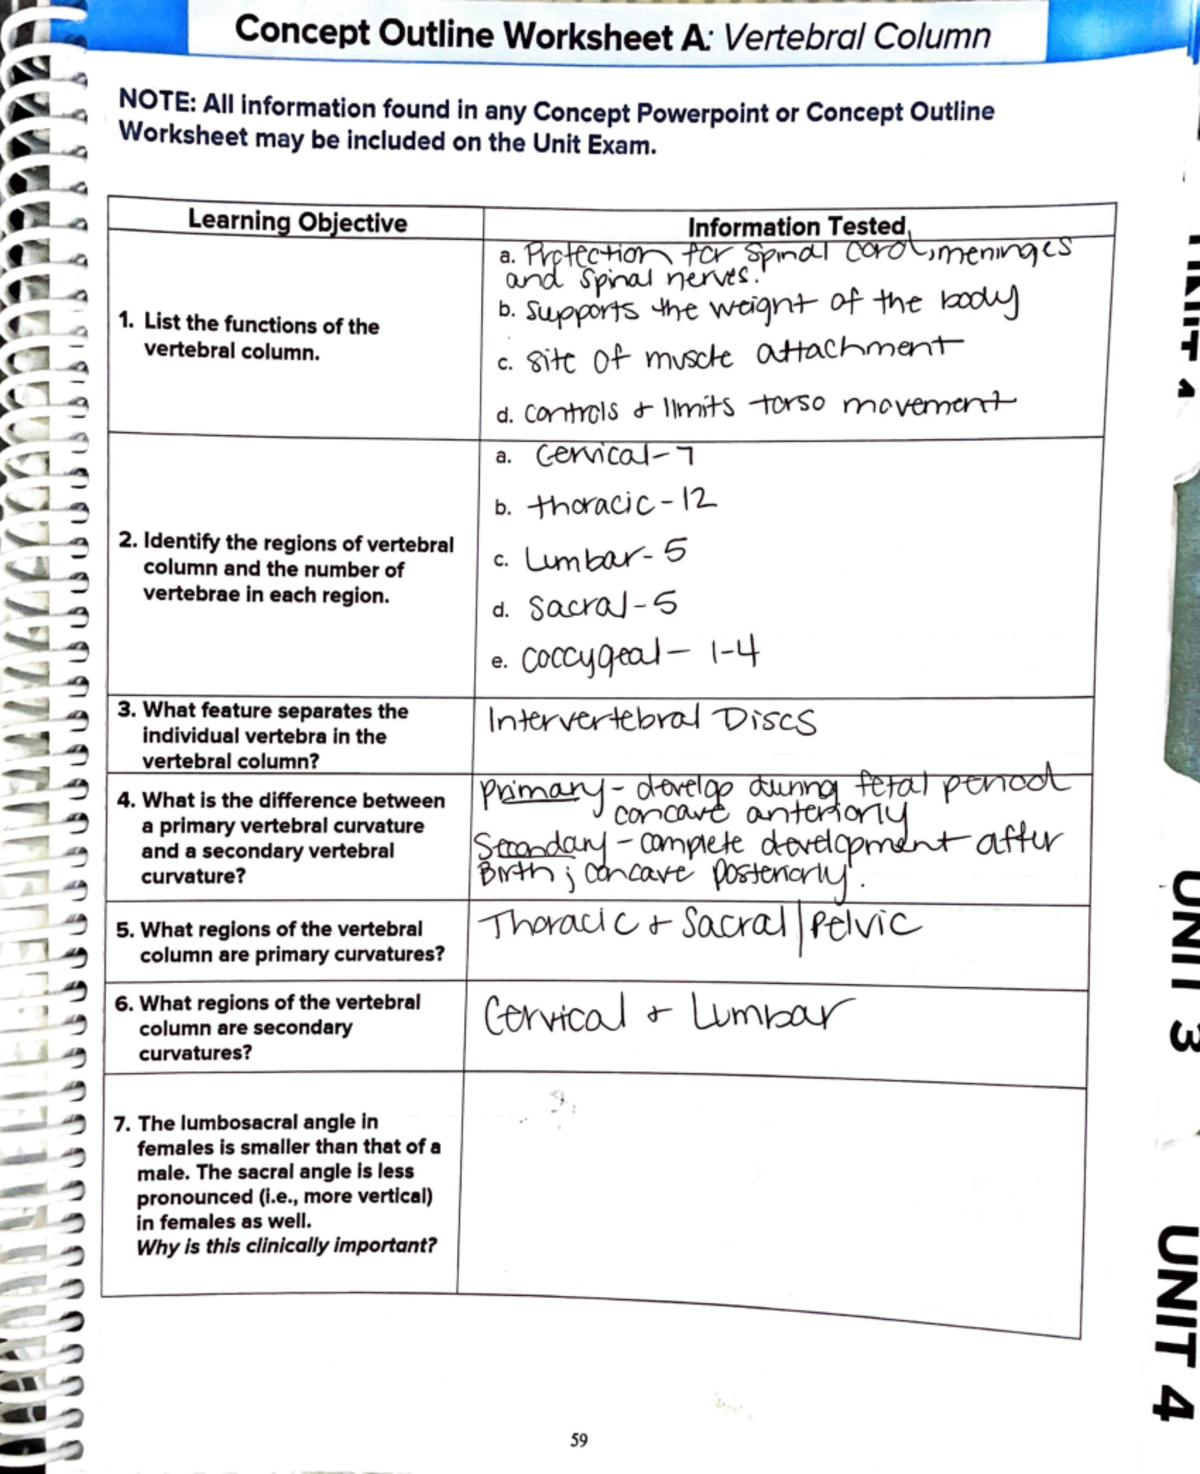 Concept Outline Worksheet A: Vertebral Column
NOTE: All information found in any Concept Powerpoint or Concept Outline
Worksheet may be included on the Unit Exam.
Learning Objective
Information Tested
1. List the functions of the
vertebral column.
a. Protection for spinal cord, meninges
and spinal nerves.
b. Supports the weight of the body
c. Site of muscle attachment
d. Controls + limits torso movement
2. Identify the regions of vertebral
column and the number of
vertebrae in each region.
a. Cervical-7
b. thoracic-12
c. Lumbar-5
d. Sacral-5
e. Coccygeal- 1-4
3. What feature separates the
individual vertebra in the
vertebral column?
Intervertebral Discs
4. What is the difference between
a primary vertebral curvature
and a secondary vertebral
curvature?
Primary - develop during fetal period
concave anteriorly
Secondary - complete development after
Birth; concave posteriorly.
5. What regions of the vertebral
column are primary curvatures?
Thoracic + Sacral/Pelvic
6. What regions of the vertebral
column are secondary
curvatures?
Cervical + Lumbar
7. The lumbosacral angle in
females is smaller than that of a
male. The sacral angle is less
pronounced (i.e., more vertical)
in females as well.
Why is this clinically important?
59
UNIT 3
UNIT 4